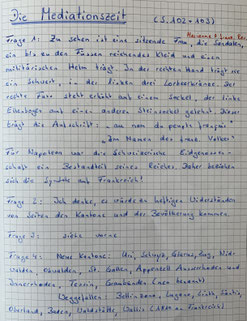 Die Mediationszeit (S. 102 + 103)
Frage 1: Zu sehen ist eine sitzende Frau, die Sandalen,
ein bis zu den Füssen reichendes Kleid und einen
militärischen Helm trägt. In der rechten Hand trägt sie
ein Schwert, in der linken drei Lorbeerkränze. Der
rechte Fuss steht erhöht auf einem Sockel, der linke
Ellenbogen auf einem anderen Steinsockel gelehnt. Dieser
trägt die Aufschrift: "au nom du peuple français" =
"Im Namen des franz. Volkes"
Für Napoleon war die Schweizerische Eidgenossen-
schaft ein Bestandteil seines Reiches. Daher beziehen
sich die Symbole auf Frankreich!
Frage 2: Ich denke, es würde zu heftigen Widerständen
von Seiten der Kantone und der Bevölkerung kommen.
Frage 3: siehe vorne
Frage 4: Neue Kantone: Uri, Schwyz, Glarus, Zug, Nid-
walden, Obwalden, St. Gallen, Appenzell Ausserrhoden und
Innerrhoden, Tessin, Graubünden (neu benannt)
Weggefallen: Bellinzona, Lugano, Linth, Säntis,
Oberland, Baden, Waldstätte, Wallis (an Frankreich)